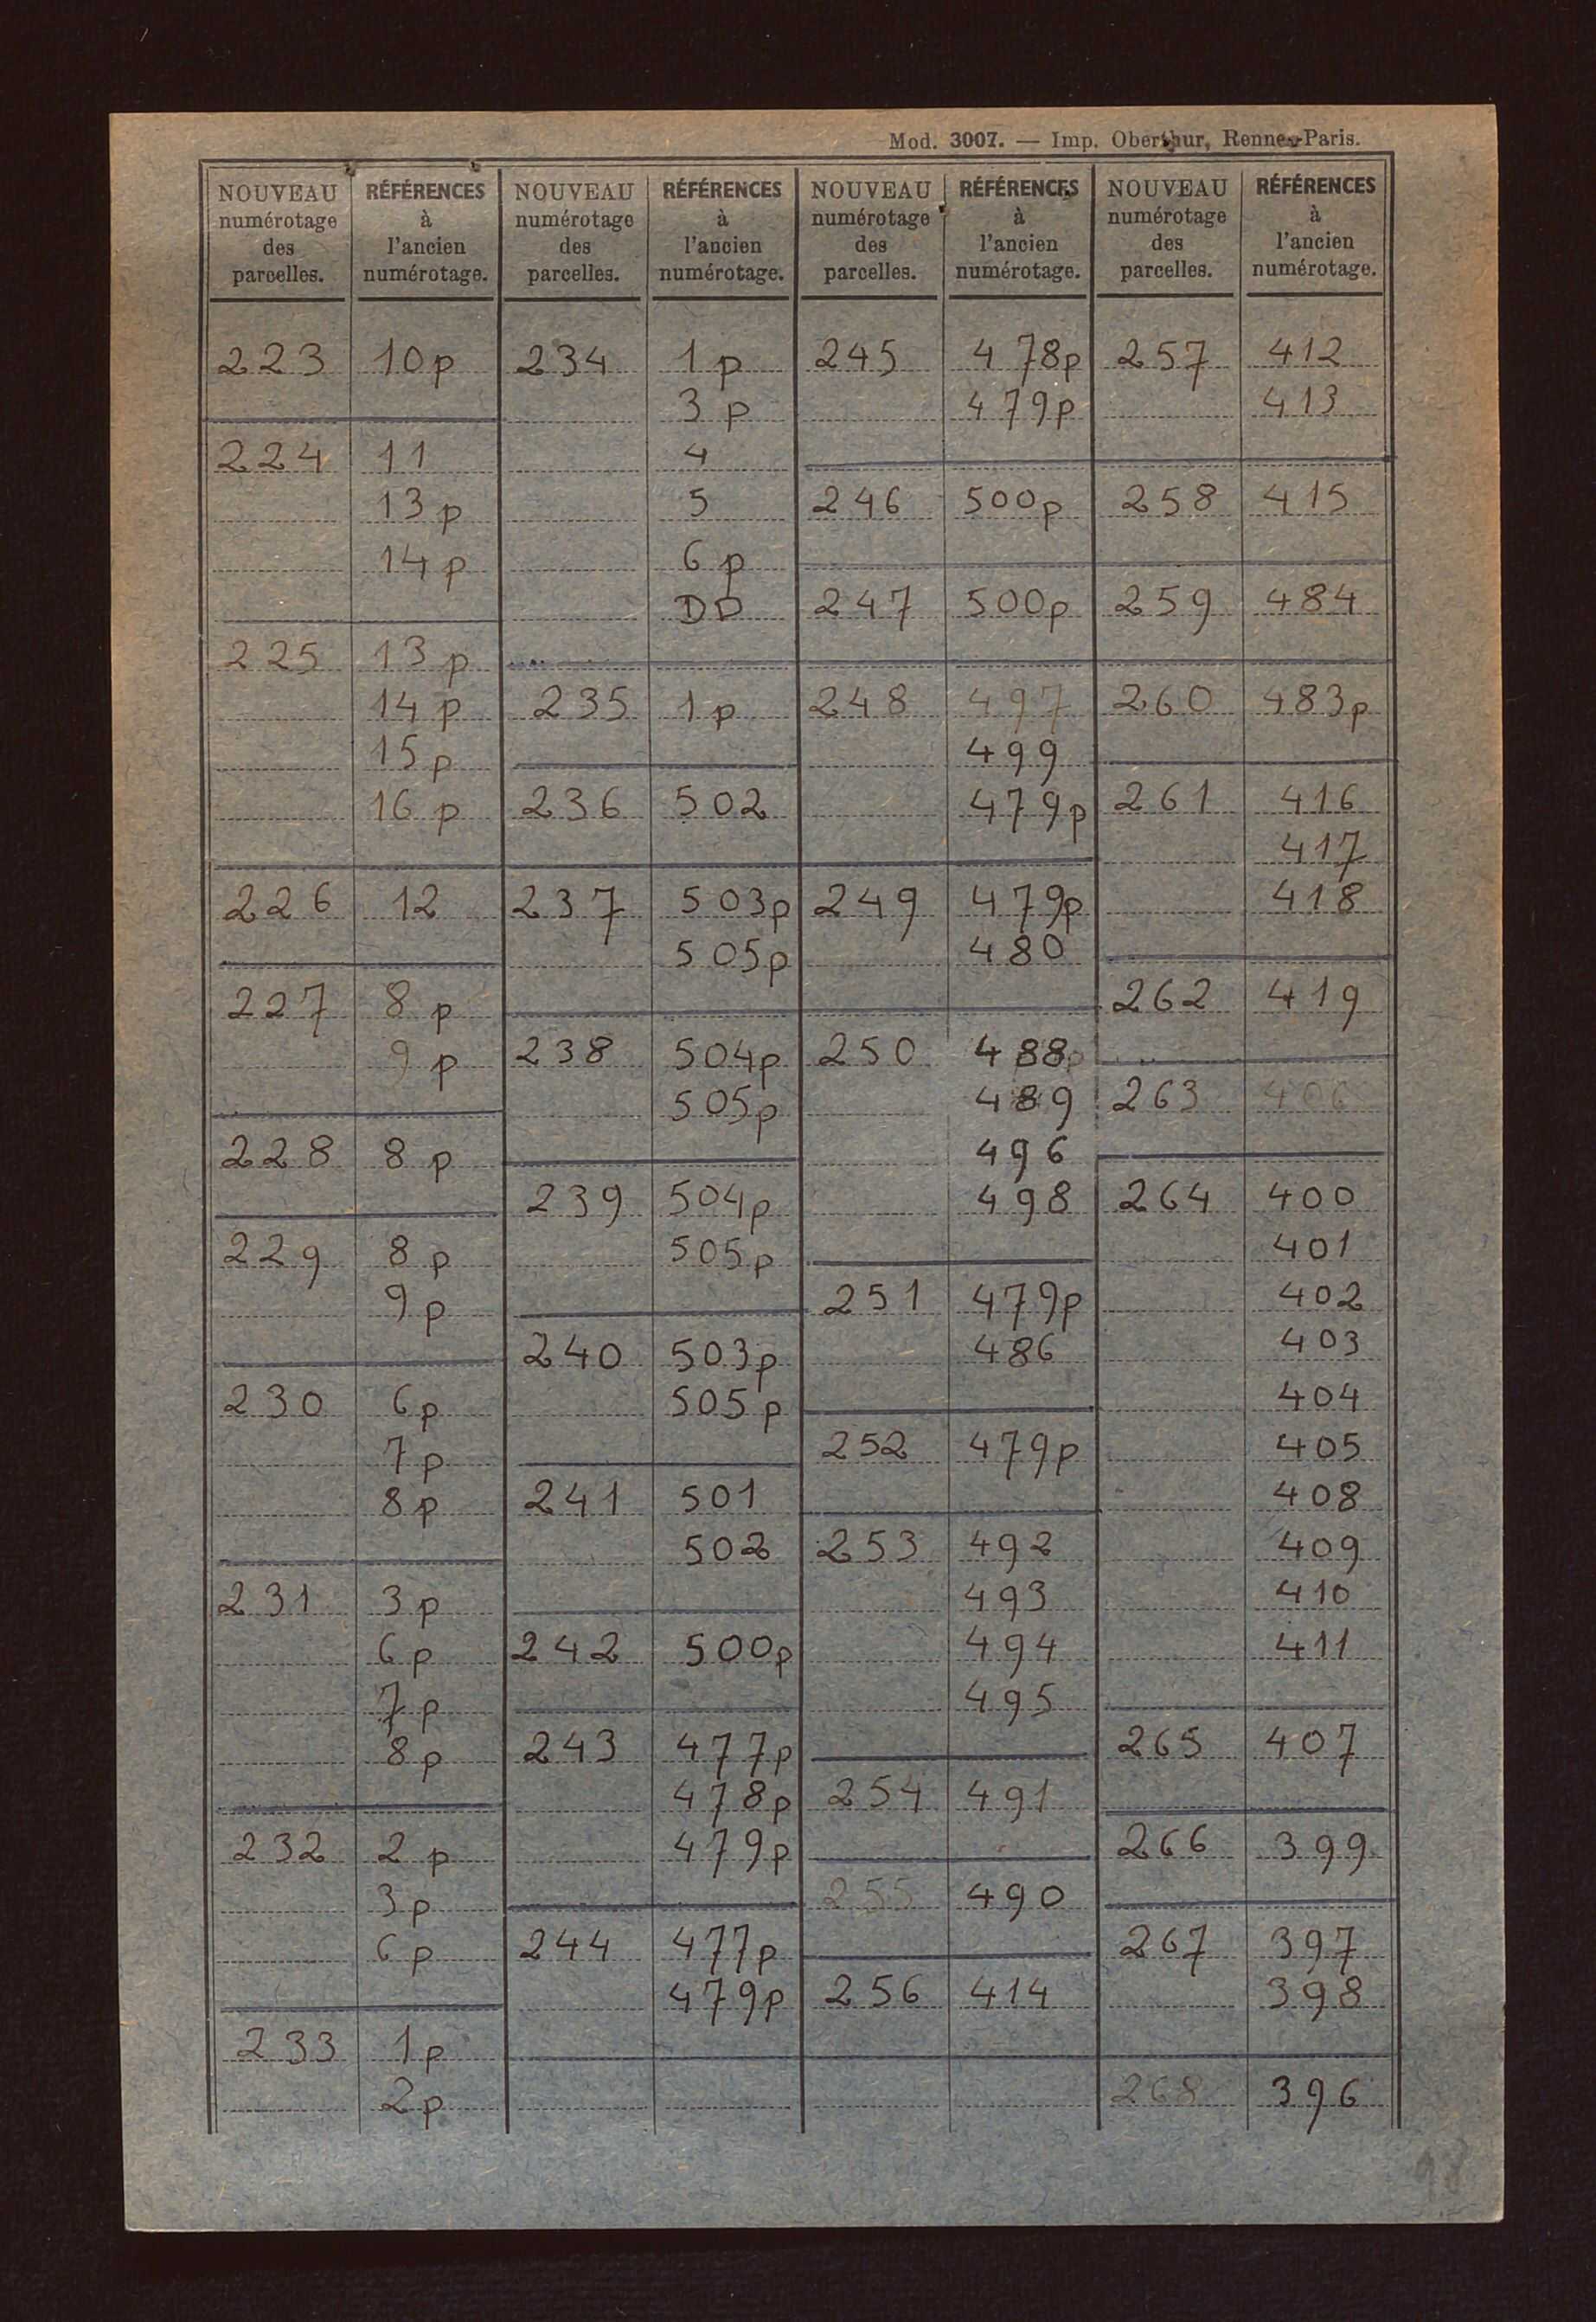 Mod. 3007. — Imp. Oberthur, Rennes-Paris.
NOUVEAU numérotage des parcelles.
RÉFÉRENCES à l'ancien numérotage.
223 10p
224 11
13p
14p
225 13p
14p
15p
16p
226 12
227 8p
9p
228 8p
229 8p
9p
230 6p
7p
8p
231 3p
6p
7p
8p
232 2p
3p
6p
233 1p
2p
NOUVEAU numérotage des parcelles.
RÉFÉRENCES à l'ancien numérotage.
234 1p
3p
4
5
6p
DP
235 1p
236 502
237 503p
505p
238 504p
505p
239 504p
505p
240 503p
505p
241 501
502
242 500p
243 477p
478p
479p
244 477p
479p
NOUVEAU numérotage des parcelles.
RÉFÉRENCES à l'ancien numérotage.
245 478p
479p
246 500p
247 500p
248 497
499
479p
249 479p
480
250 488p
489
496
498
251 479p
486
252 479p
253 492
493
494
495
254 491
255 490
256 414
NOUVEAU numérotage des parcelles.
RÉFÉRENCES à l'ancien numérotage.
257 412
413
258 415
259 484
260 483p
261 416
417
418
262 419
263 406
264 400
401
402
403
404
405
408
409
410
411
265 407
266 399
267 397
398
268 396
98